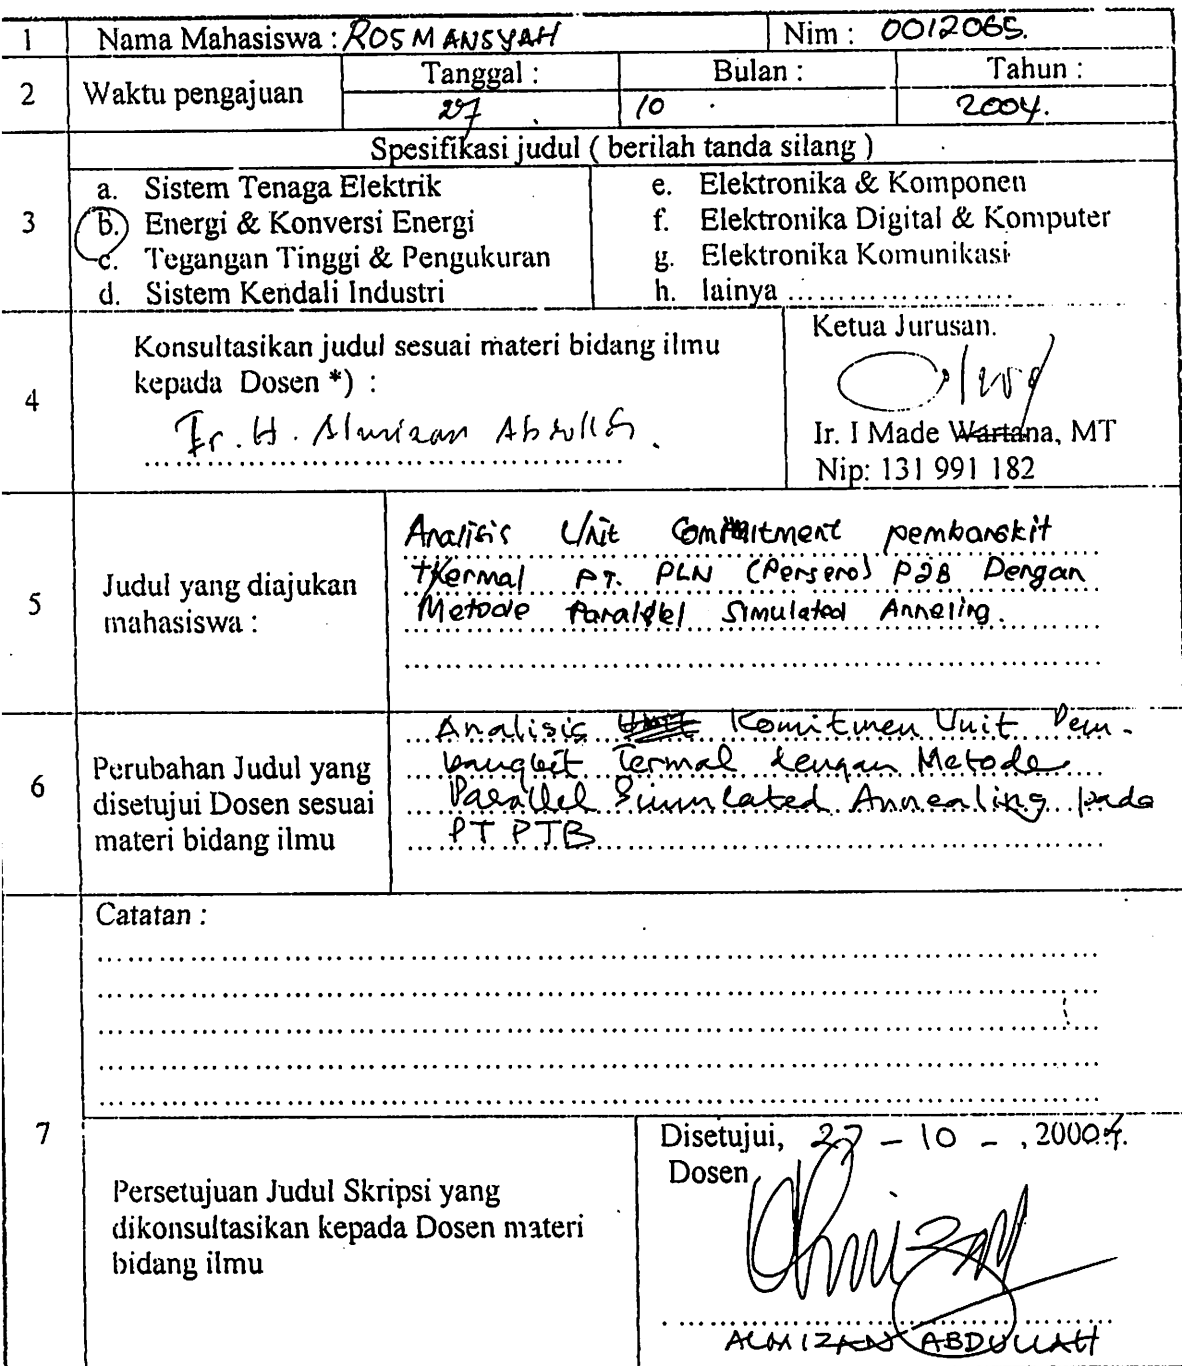 1 Nama Mahasiswa : ROSMANSYAH Nim : 0012065.
2 Waktu pengajuan Tanggal : Bulan : Tahun :
27 10 2004.
Spesifikasi judul ( berilah tanda silang )
3
a. Sistem Tenaga Elektrik
b. Energi & Konversi Energi
c. Tegangan Tinggi & Pengukuran
d. Sistem Kendali Industri
e. Elektronika & Komponen
f. Elektronika Digital & Komputer
g. Elektronika Komunikasi
h. lainya ......................
4
Konsultasikan judul sesuai materi bidang ilmu
kepada Dosen *) :
Ir. H. Almizan Abdullah.
Ketua Jurusan.
Ir. I Made Wartana, MT
Nip: 131 991 182
5
Judul yang diajukan
mahasiswa :
Analisis Unit Commitment pembangkit
thermal PT. PLN (Persero) P3B Dengan
Metode Paralel Simulated Anneling.
6
Perubahan Judul yang
disetujui Dosen sesuai
materi bidang ilmu
Analisis Unit Komitmen Unit Pem-
bangkit Termal dengan Metode
Parallel Simulated Annealing pada
PT PTB
7
Catatan :
Persetujuan Judul Skripsi yang
dikonsultasikan kepada Dosen materi
bidang ilmu
Disetujui, 27 - 10 - , 2004.
Dosen
ALMIZAN ABDULLAH